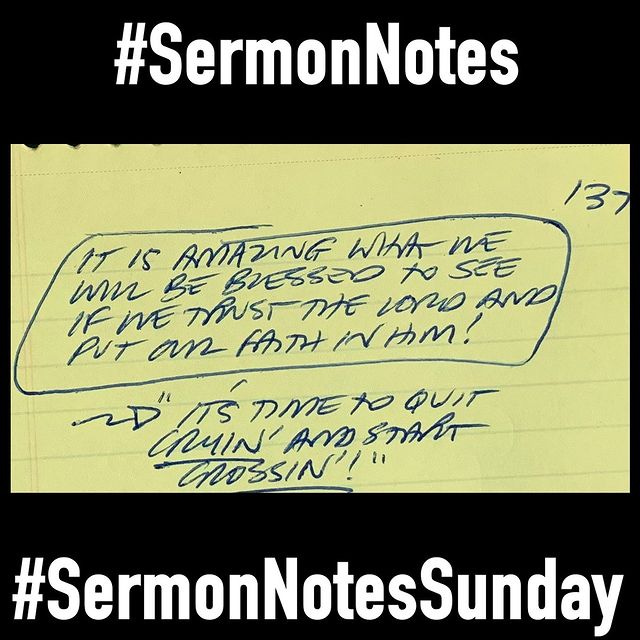 #SermonNotes
137
IT IS AMAZING WHAT WE
WILL BE BLESSED TO SEE
IF WE TRUST THE LORD AND
PUT OUR FAITH IN HIM!
"IT'S TIME TO QUIT
CRYIN' AND START
CROSSIN'!"
#SermonNotesSunday